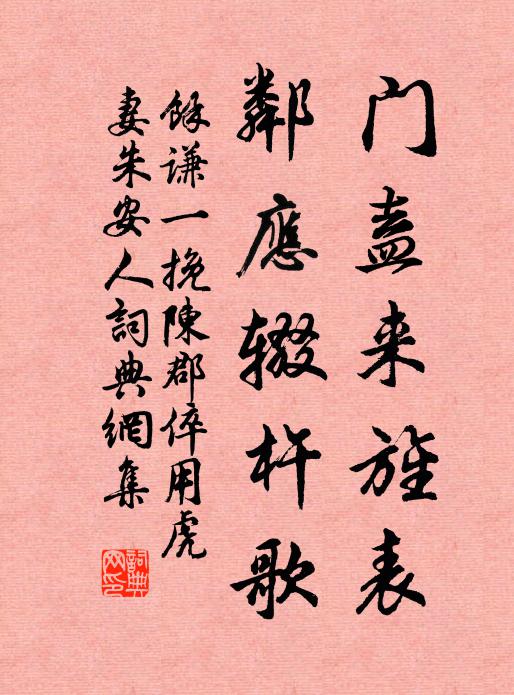 门盍来旌表
鄰應辍杵歌
餘謙一挽陳郡倅用虎
妻朱安人詞典網集
詞典网印